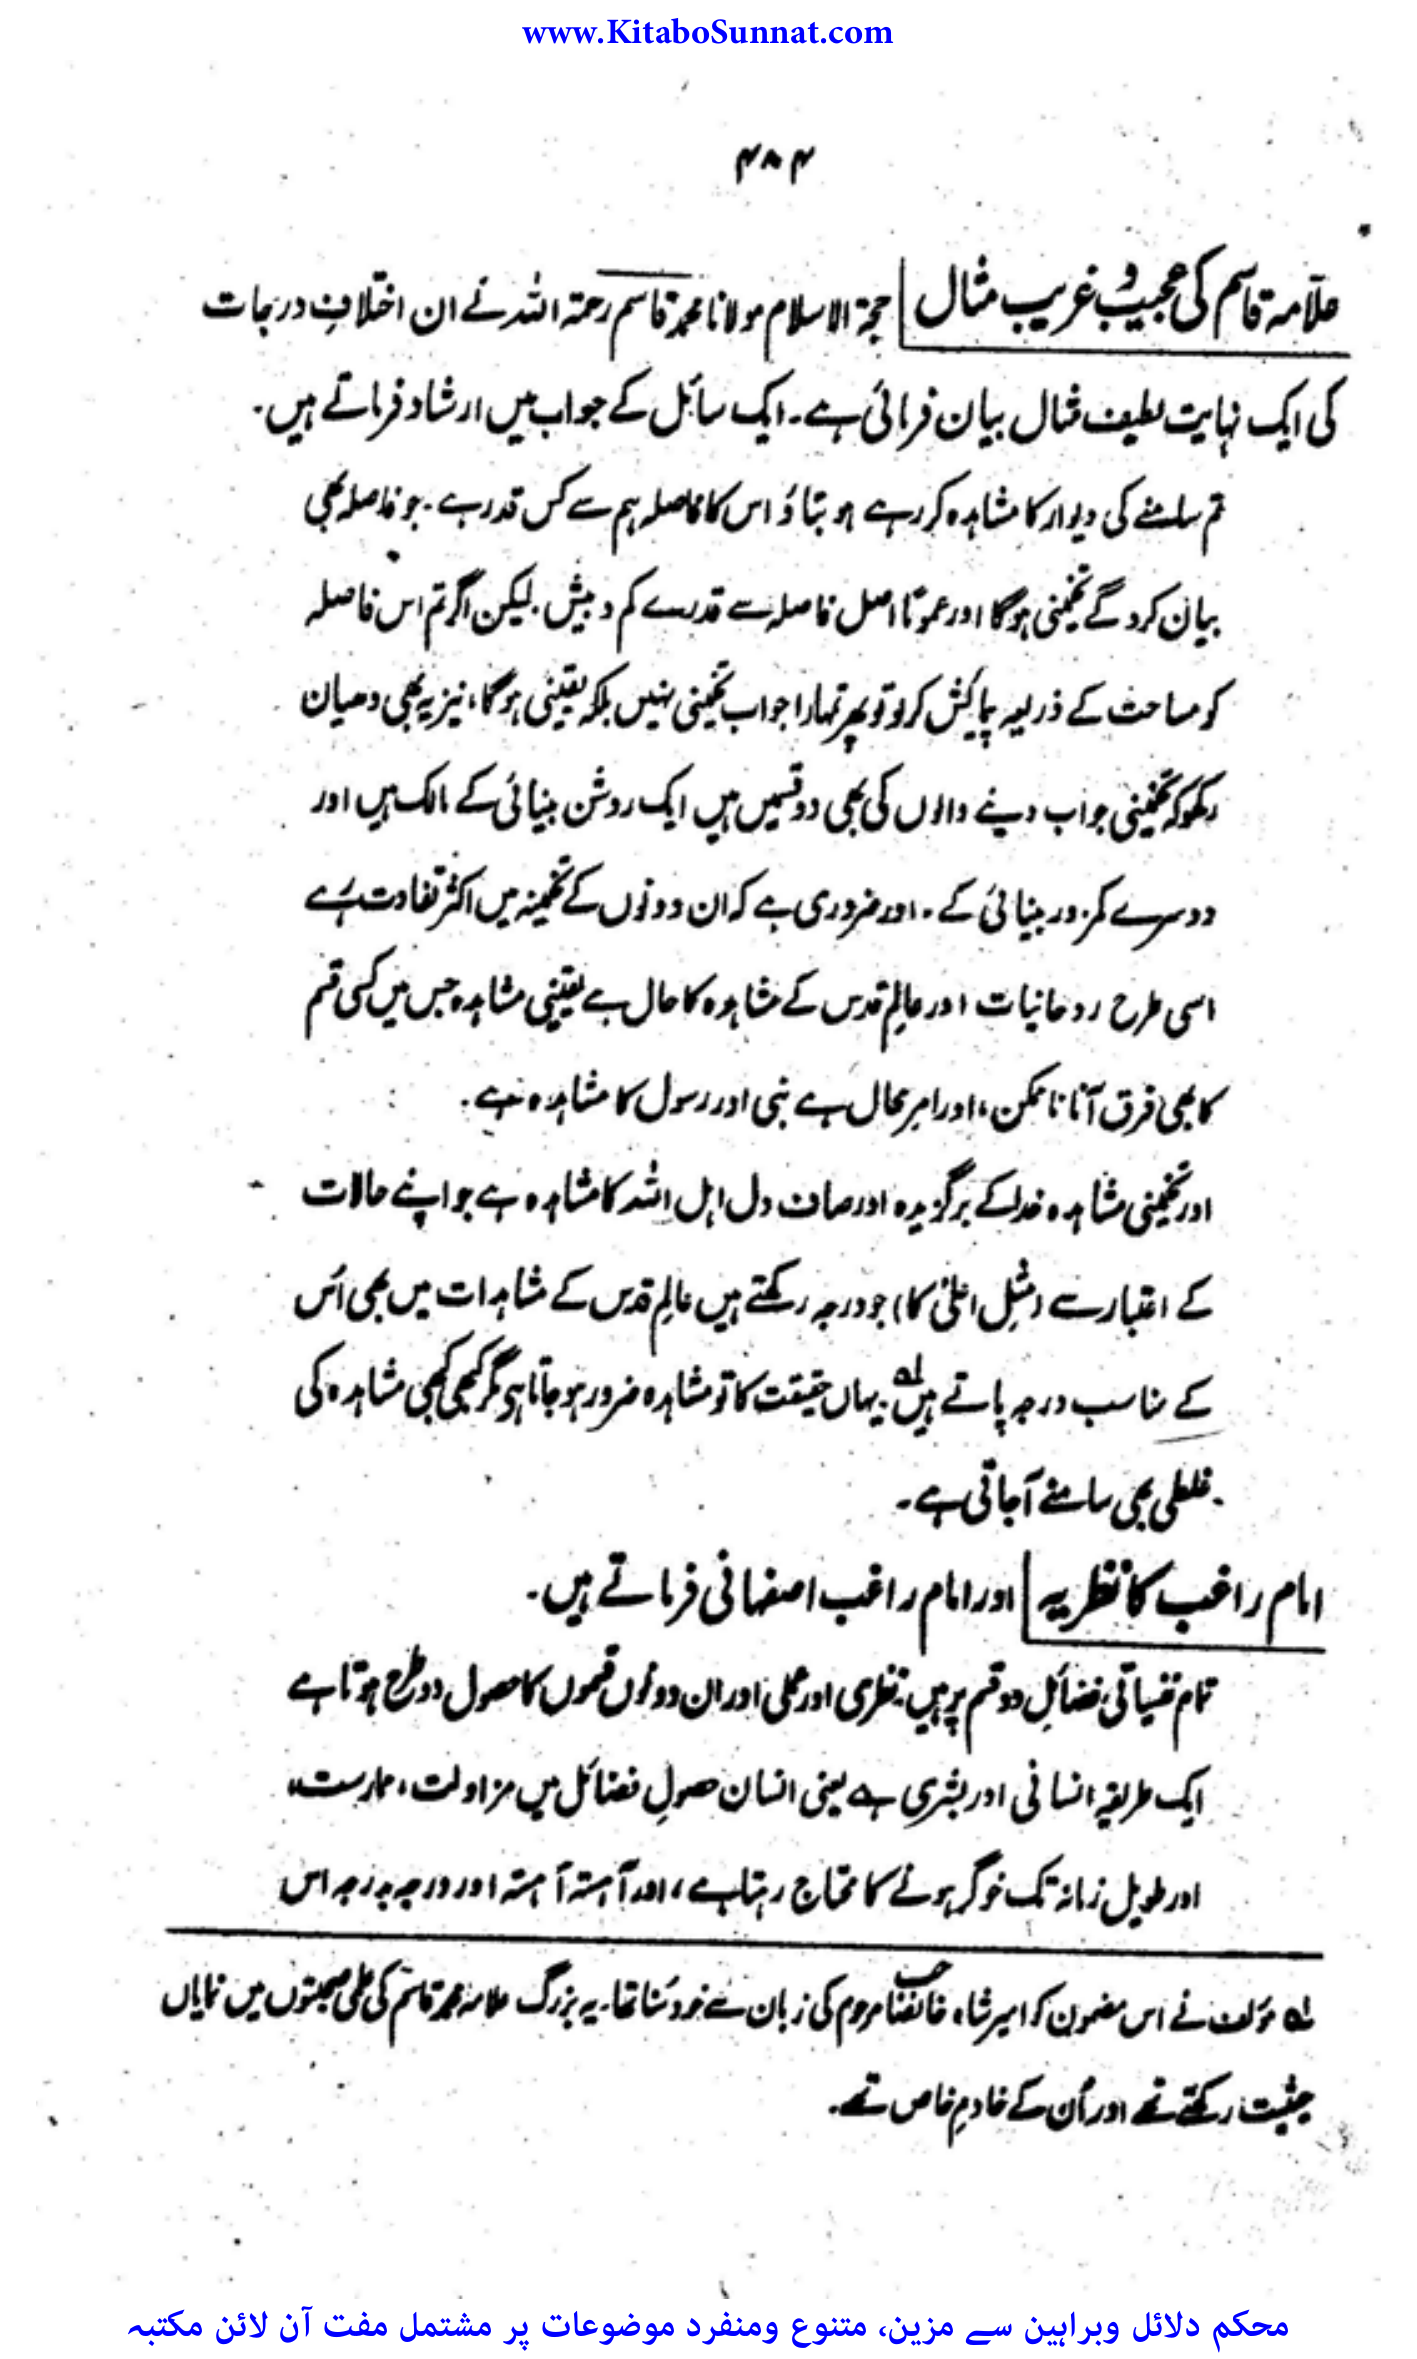 www.KitaboSunnat.com
۴۸۴
علامہ قاسم کی عجیب و غریب مثال حجۃ الاسلام مولانا محمد قاسم رحمۃ اللہ نے ان اختلافِ درجات
کی ایک نہایت لطیف مثال بیان فرمائی ہے۔ ایک سائل کے جواب میں ارشاد فرماتے ہیں۔
تم سامنے کی دیوار کا مشاہدہ کر رہے ہو بتاؤ اس کا فاصلہ ہم سے کس قدر ہے۔ جو فاصلہ بھی
بیان کرو گے تخمینی ہوگا اور عموماً اصل فاصلہ سے قدرے کم و بیش۔ لیکن اگر تم اس فاصلہ
کو مساحت کے ذریعہ پیمائش کر لو تو پھر تمہارا جواب تخمینی نہیں بلکہ یقینی ہوگا، نیز یہ بھی دھیان
رکھو کہ تخمینی جواب دینے والوں کی بھی دو قسمیں ہیں ایک روشن بینائی کے مالک ہیں اور
دوسرے کمزور بینائی کے۔ اور ضروری ہے کہ ان دونوں کے تخمینہ میں اکثر تفاوت رہے
اسی طرح روحانیات اور عالمِ قدس کے مشاہدہ کا حال ہے یقینی مشاہدہ جس میں کسی قسم
کا بھی فرق آنا ناممکن، اور امر محال ہے نبی اور رسول کا مشاہدہ ہے۔
اور تخمینی مشاہدہ خدا کے برگزیدہ اور صاف دل اہل اللہ کا مشاہدہ ہے جو اپنے حالات
کے اعتبار سے (مثلِ اعلیٰ کا) جو درجہ رکھتے ہیں عالمِ قدس کے مشاہدات میں بھی اُس
کے مناسب درجہ پاتے ہیں لہ۔ یہاں حقیقت کا تو مشاہدہ ضرور ہو جاتا ہی مگر کبھی کبھی مشاہدہ کی
غلطی بھی سامنے آجاتی ہے۔
امام راغب کا نظریہ اور امام راغب اصفہانی فرماتے ہیں۔
تمام نفسیاتی فضائل دو قسم پر ہیں نظری اور عملی اور ان دونوں قسموں کا حصول دو طرح ہوتا ہے
ایک طریقہ انسانی اور بشری ہے یعنی انسان حصولِ فضائل میں مزاولت، ممارست،
اور طویل زمانہ تک خوگر ہونے کا محتاج رہتا ہے، اور آہستہ آہستہ اور درجہ بدرجہ اس
لہ مؤلف نے اس مضمون کو امیر شاہ خانصاحب مرحوم کی زبان سے خود سُنا تھا۔ یہ بزرگ علامہ محمد قاسم کی علمی صحبتوں میں نمایاں
حیثیت رکھتے تھے اور اُن کے خادمِ خاص تھے۔
محکم دلائل وبراہین سے مزین، متنوع ومنفرد موضوعات پر مشتمل مفت آن لائن مکتبہ